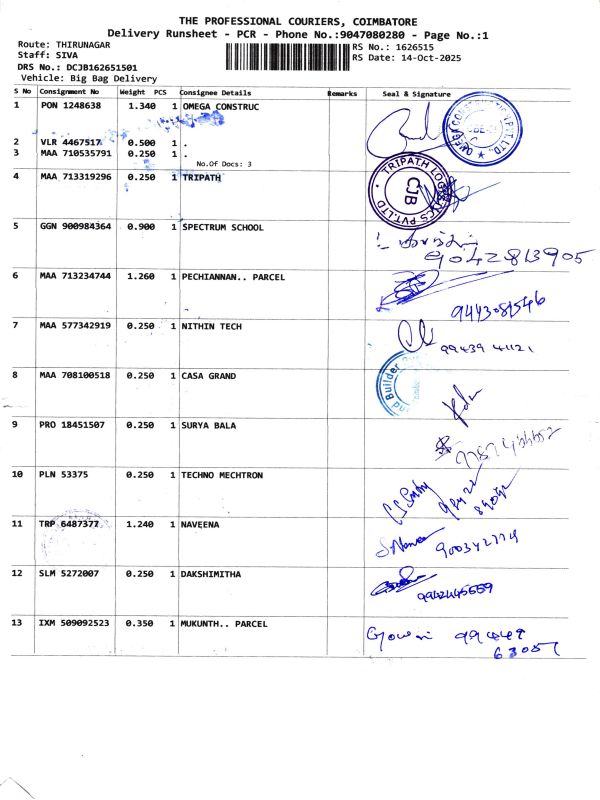 THE PROFESSIONAL COURIERS, COIMBATORE
Delivery Runsheet - PCR - Phone No.:9047080280 - Page No.:1
Route: THIRUNAGAR
RS No.: 1626515
Staff: SIVA
RS Date: 14-Oct-2025
DRS No.: DCJB162651501
Vehicle: Big Bag Delivery
S No Consignment No Weight PCS Consignee Details Remarks Seal & Signature
1 PON 1248638 1.340 1 OMEGA CONSTRUC
2 VLR 4467517 0.500 1 .
3 MAA 710535791 0.250 1 .
No.Of Docs: 3
4 MAA 713319296 0.250 1 TRIPATH
TRIPATH LOGISTICS PVT.LTD
CJB
5 GGN 900984364 0.900 1 SPECTRUM SCHOOL
9042813905
6 MAA 713234744 1.260 1 PECHIANNAN.. PARCEL
9443081546
7 MAA 577342919 0.250 1 NITHIN TECH
99439 41121
8 MAA 708100518 0.250 1 CASA GRAND
Builder
9 PRO 18451507 0.250 1 SURYA BALA
10 PLN 53375 0.250 1 TECHNO MECHTRON
11 TRP 6487377 1.240 1 NAVEENA
12 SLM 5272007 0.250 1 DAKSHIMITHA
9942445659
13 IXM 509092523 0.350 1 MUKUNTH.. PARCEL
Gowri 994449
63057